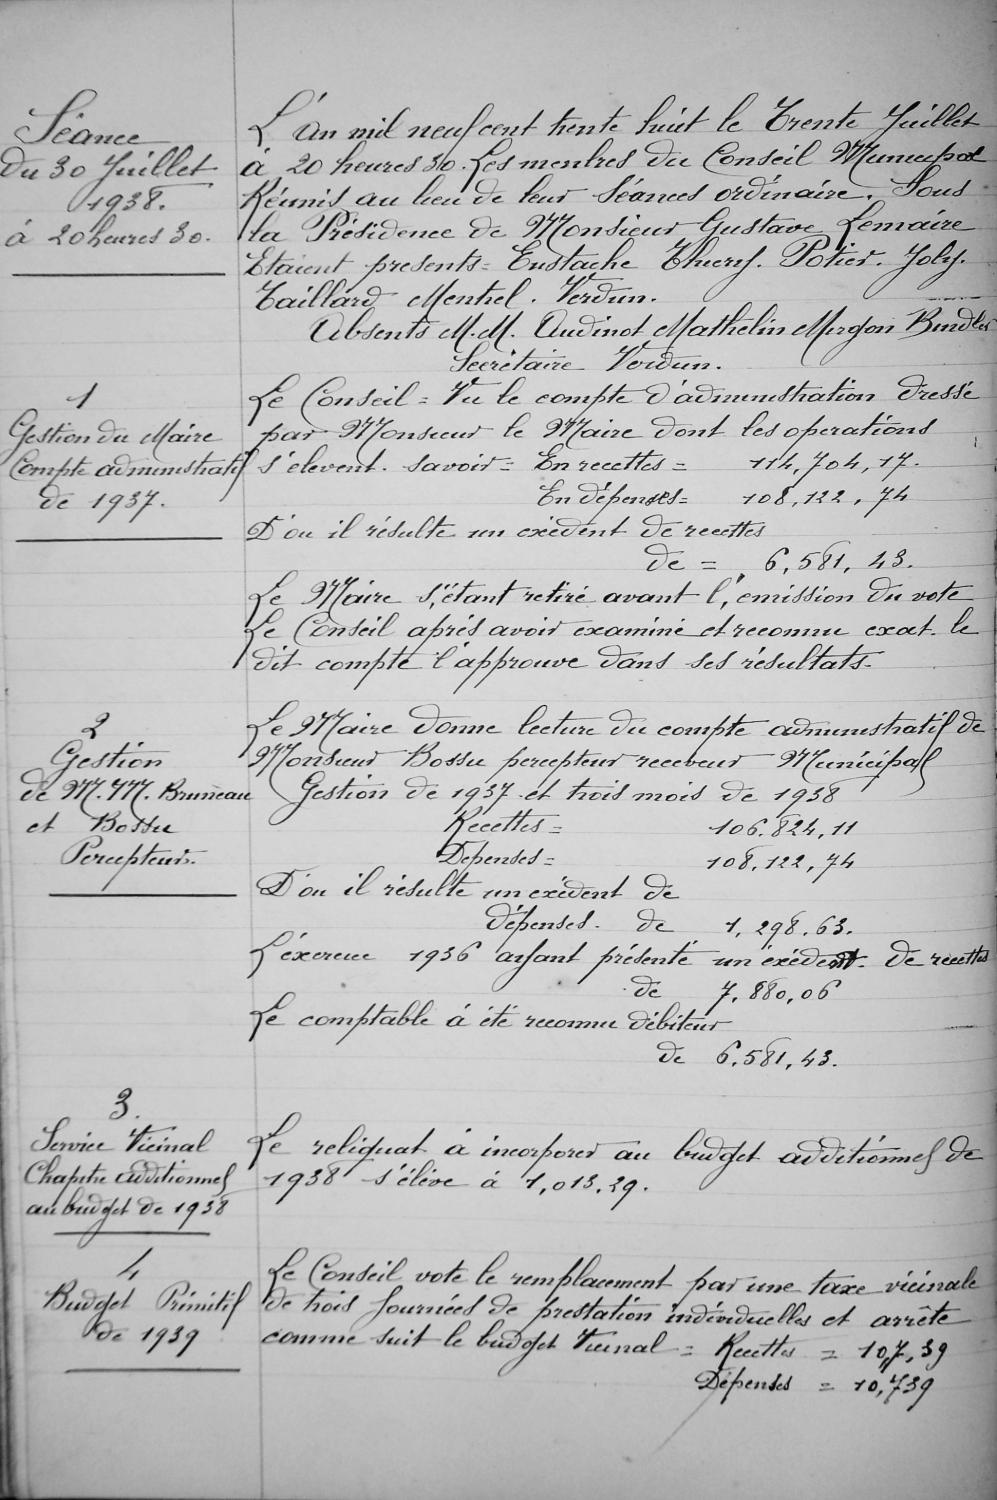 Séance
du 30 Juillet
1938.
à 20 heures 30.
L'An mil neuf cent trente huit le Trente Juillet
à 20 heures 30. Les menbres du Conseil Municipal
Réunis au lieu de leur Séances ordinaire. Sous
la Présidence de Monsieur Gustave Lemaire
Etaient presents = Eustache Thiery. Potier. Joly.
Taillard Mentrel. Verdun.
Absents M.M. Audinot Mathelin Mergon Bindler
Secrétaire Verdun.
1
Gestion du Maire
Compte administratif
de 1937.
Le Conseil = Vu le compte d'administration dressé
par Monsieur le Maire dont les opérations
s'elevent. savoir = En recettes = 114,704,17.
En dépenses = 108,122,74
D'ou il résulte un exédent de recettes
de = 6,581,43.
Le Maire s'étant retiré avant l'emission du vote
Le Conseil aprés avoir examiné et reconnu exact. le
dit compte l'approuve dans ses résultats-
2
Gestion
de M.M. Bruneau
et Bossu
Percepteurs.
Le Maire donne lecture du compte administratif de
Monsieur Bossu percepteur receveur Municipal
Gestion de 1937 et trois mois de 1938
Recettes = 106.824,11
Dépenses = 108,122,74
D'ou il résulte un exédent de
dépenses. de 1,298.63.
L'éxercice 1936 ayant présenté un éxédent de recettes
de 7,880,06
Le comptable à été reconnu débiteur
de 6.581,43.
3.
Service Vicinal
Chapitre additionnel
au budget de 1938
Le reliquat à incorporer au budget additionnel de
1938 s'élève à 1,013.29.
4
Budget Primitif
de 1939
Le Conseil vote le remplacement par une taxe vicinale
de trois Journées de préstation individuelles et arrête
comme suit le budget Vicinal = Recettes = 10,7,39
Dépenses = 10,739